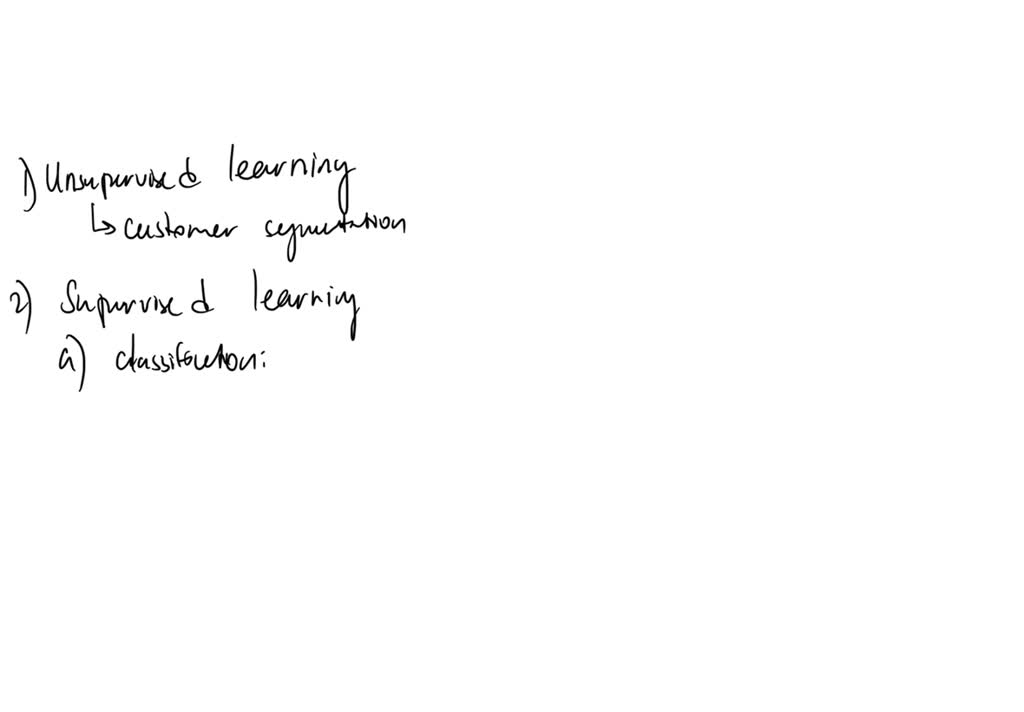 1) Unsupervised learning
↳ customer segmentation
2) Supervised learning
a) classification: